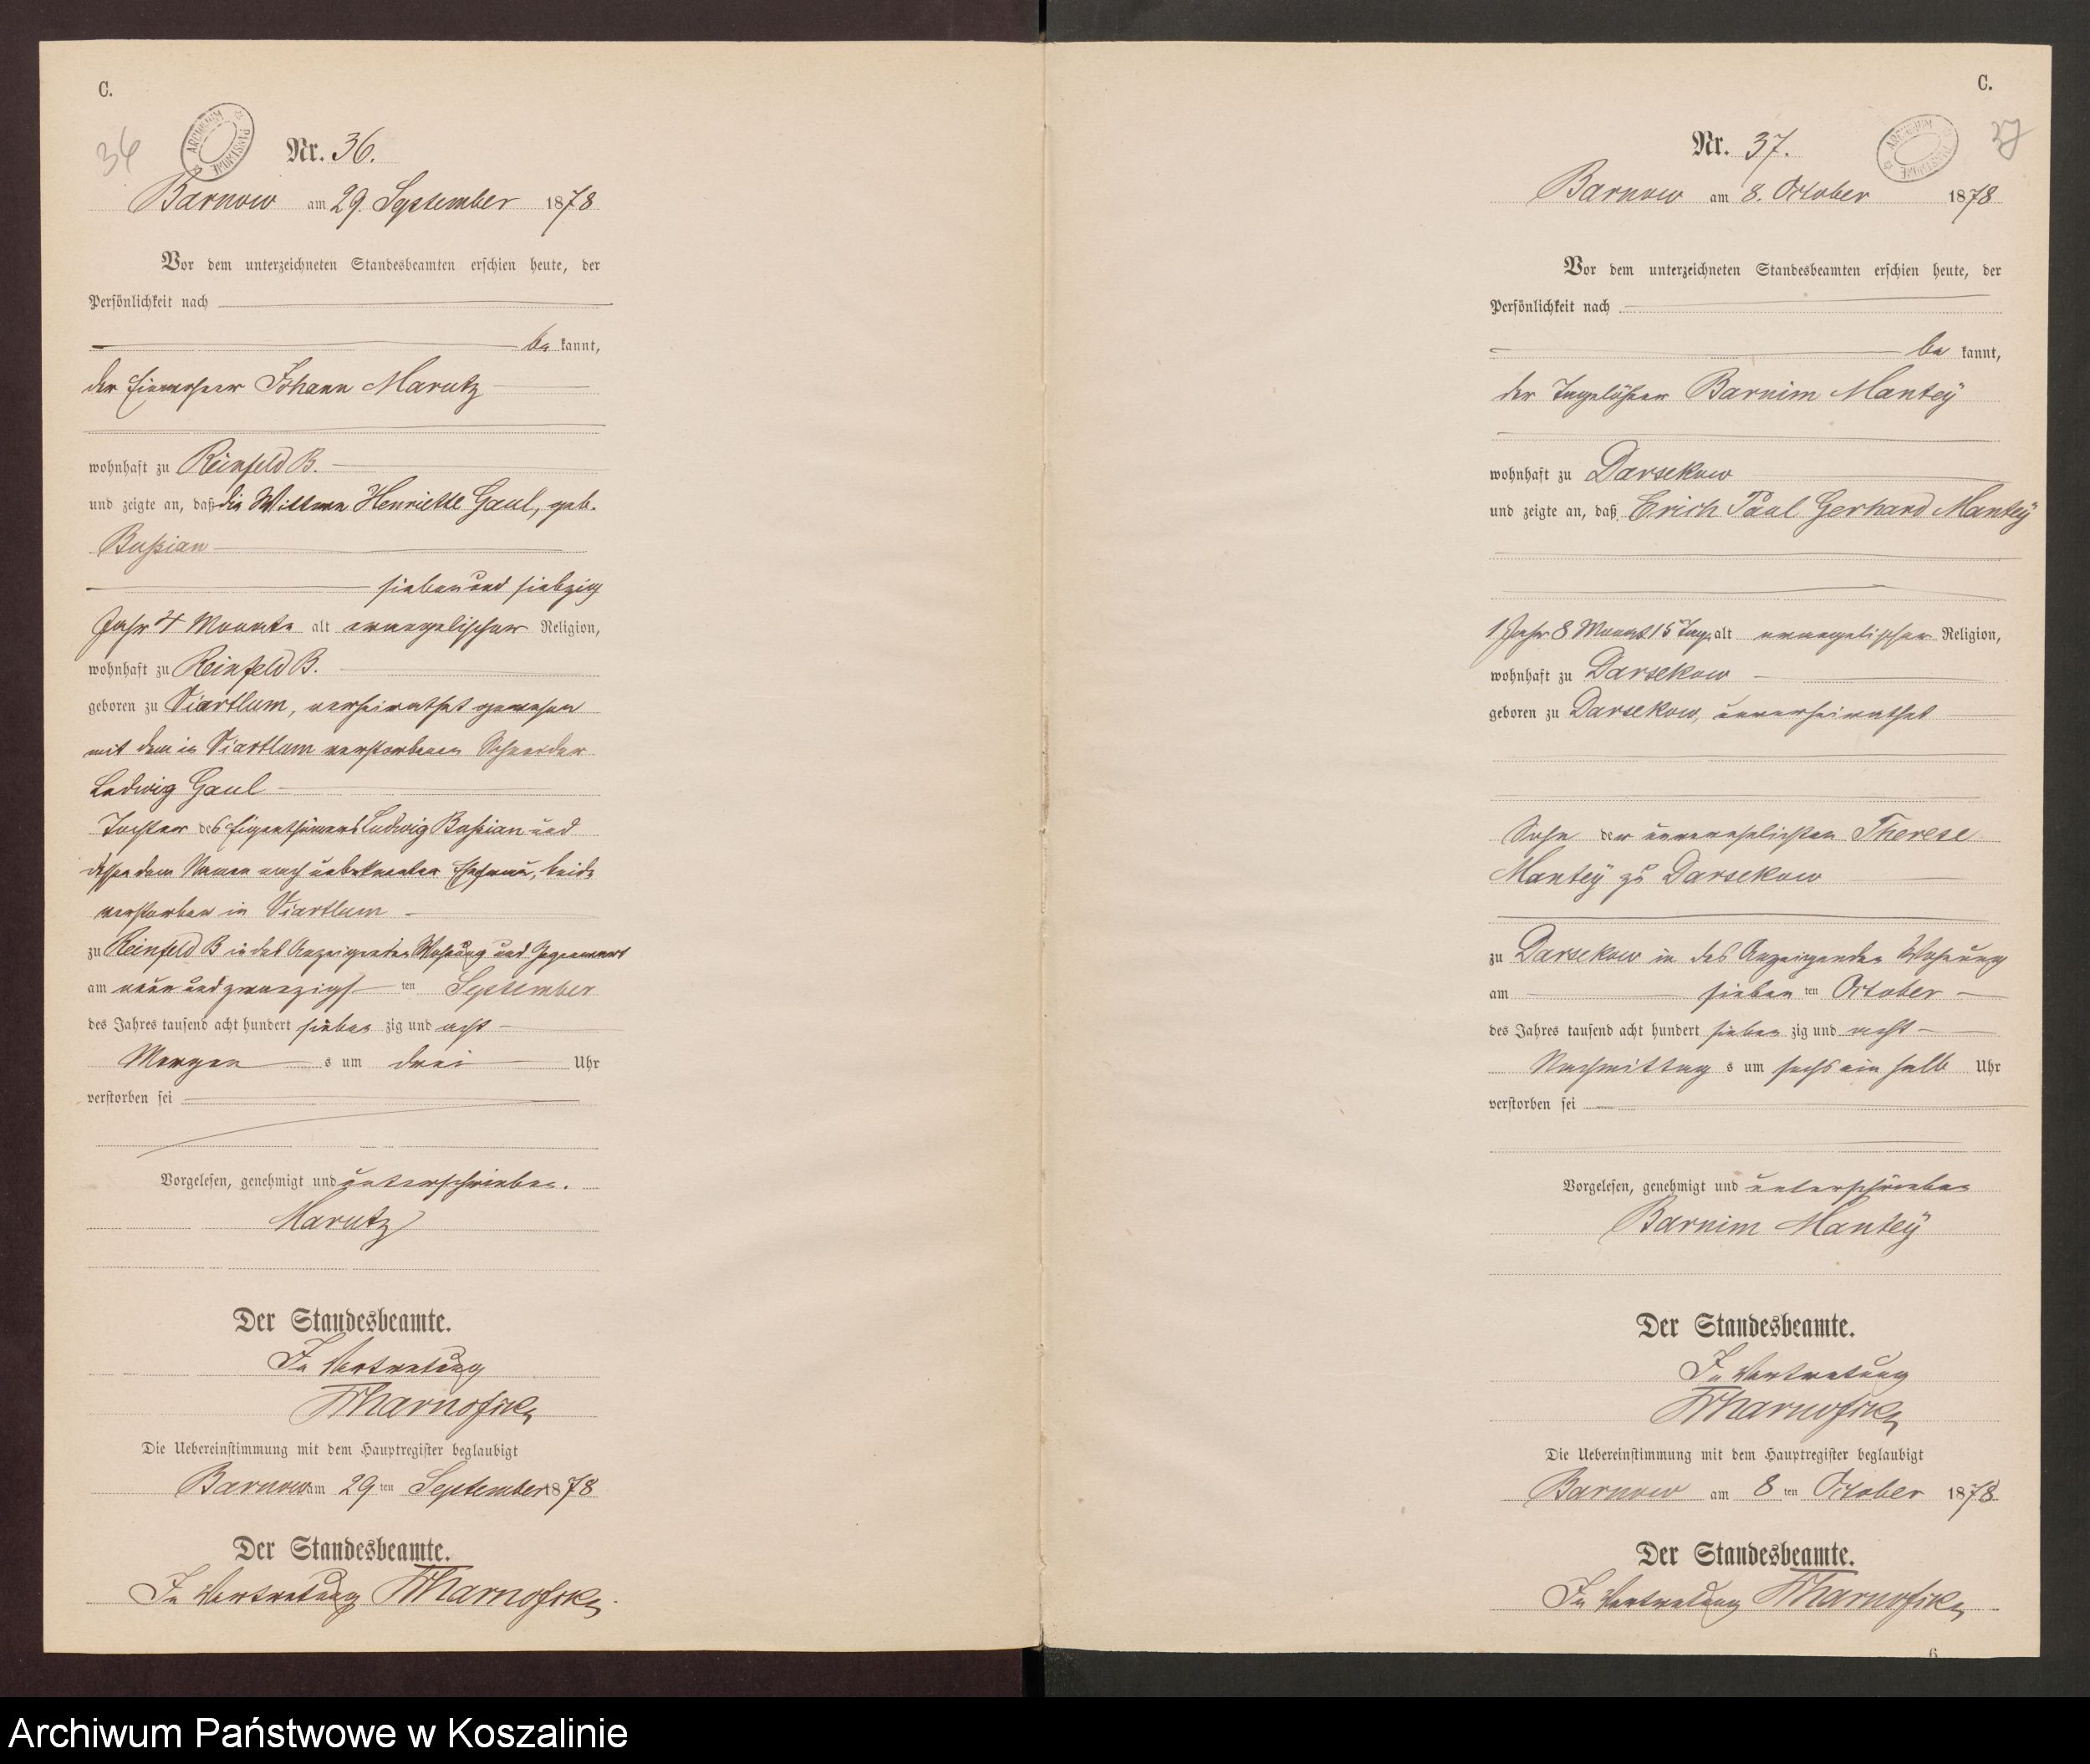 C.
36
ARCHIWUM PAŃSTWOWE
Nr. 36.
Barnow am 29. September 1878
Vor dem unterzeichneten Standesbeamten erschien heute, der
Persönlichkeit nach
be kannt,
der Einwohner Johann Marutz
wohnhaft zu Reinfeld B.
und zeigte an, daß die Wittwe Henriette Gaul, geb.
Bußian
sieben und siebzig
Jahr 4 Monate alt evangelischer Religion,
wohnhaft zu Reinfeld B.
geboren zu Viartlum, verheirathet gewesen
mit dem in Viartlum verstorbenen Schneider
Ludwig Gaul
Tochter des Eigenthümers Ludwig Bußian und
dessen dem Namen nach unbekannten Ehefrau, beide
verstorben in Viartlum
zu Reinfeld B in des Anzeigenden Wohnung und Gegenwart
am neun und zwanzigs ten September
des Jahres tausend acht hundert sieben zig und acht
Morgen s um drei Uhr
verstorben sei
Vorgelesen, genehmigt und unterschrieben.
Marutz
Der Standesbeamte.
In Vertretung
Die Uebereinstimmung mit dem Hauptregister beglaubigt
Barnow am 29 ten September 1878
Der Standesbeamte.
In Vertretung
C.
37
ARCHIWUM PAŃSTWOWE
Nr. 37.
Barnow am 8. October 1878
Vor dem unterzeichneten Standesbeamten erschien heute, der
Persönlichkeit nach
be kannt,
der Tagelöhner Barnim Manteÿ
wohnhaft zu Darsekow
und zeigte an, daß Erich Paul Gerhard Manteÿ
1 Jahr 8 Monat 15 Tage alt evangelischer Religion,
wohnhaft zu Darsekow
geboren zu Darsekow, unverheirathet
Sohn der unverehelichten Therese
Manteÿ zu Darsekow
zu Darsekow in des Anzeigenden Wohnung
am sieben ten October
des Jahres tausend acht hundert sieben zig und acht
Nachmittag s um sechs ein halb Uhr
verstorben sei
Vorgelesen, genehmigt und unterschrieben
Barnim Manteÿ
Der Standesbeamte.
In Vertretung
Die Uebereinstimmung mit dem Hauptregister beglaubigt
Barnow am 8 ten October 1878
Der Standesbeamte.
In Vertretung
6
Archiwum Państwowe w Koszalinie